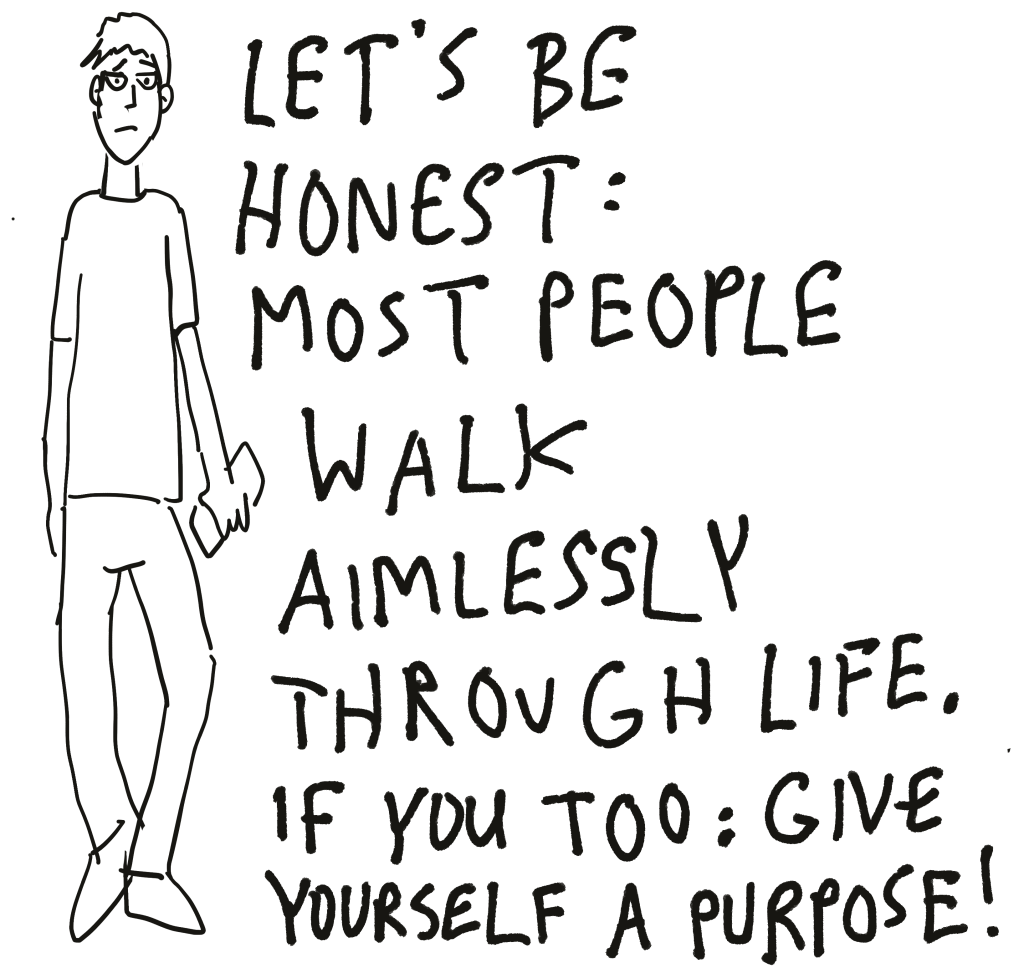 LET'S BE
HONEST:
MOST PEOPLE
WALK
AIMLESSLY
THROUGH LIFE.
IF YOU TOO: GIVE
YOURSELF A PURPOSE!